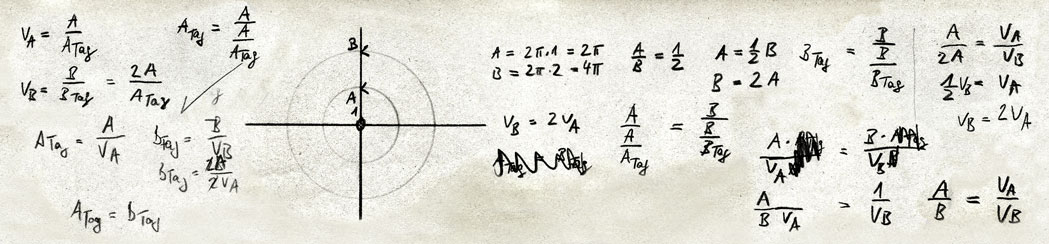 V_A = A / A_Tag
A_Tag = A / (A / A_Tag)
V_B = B / B_Tag = 2A / A_Tag
A_Tag = A / V_A
B_Tag = B / V_B
B_Tag = 2A / 2V_A
A_Tag = B_Tag
B
A
1
A = 2π·1 = 2π
B = 2π·2 = 4π
A / B = 1 / 2
A = 1/2 B
B = 2A
V_B = 2V_A
A / (A / A_Tag) = B / (B / B_Tag)
B_Tag = B / (B / B_Tag)
A / 2A = V_A / V_B
1/2 V_B = V_A
V_B = 2V_A
A · / V_A = B · / V_B
A / B V_A = 1 / V_B
A / B = V_A / V_B